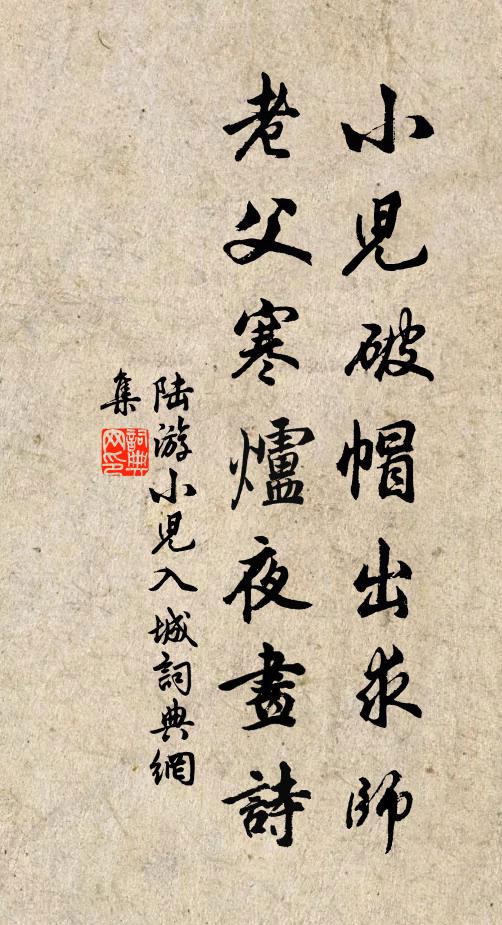 小児破帽出求師
老父寒爐夜畫詩
陆游小児入城詞典網
集
詞典网印